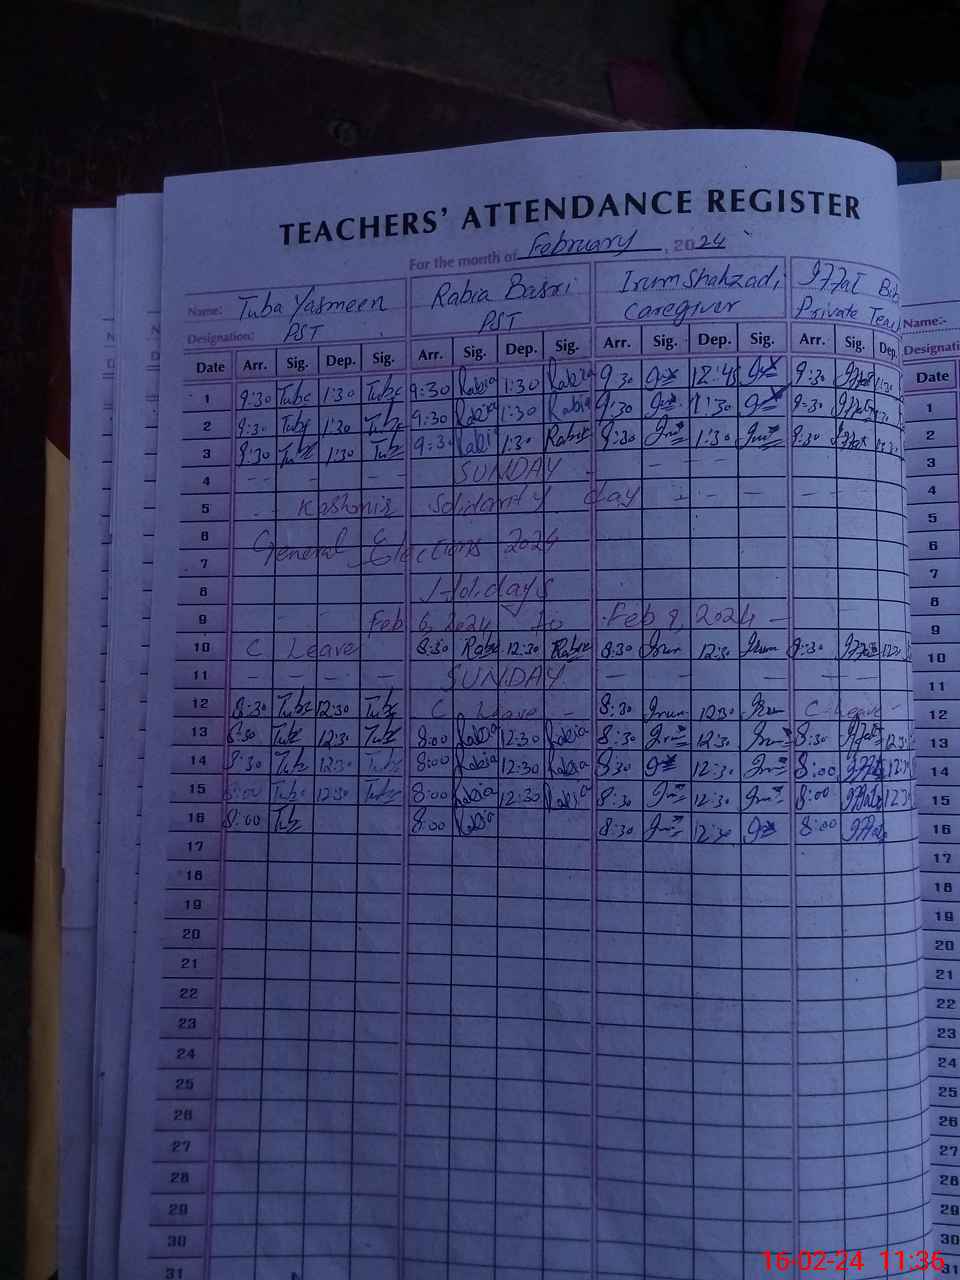 TEACHERS' ATTENDANCE REGISTER
For the month of February, 2024
Name: Tuba Yasmeen Rabia Basri Irum Shahzadi Iffat Bibi
Designation: PST PST Caregiver Private Teac
Name:-
Designati
Date Arr. Sig. Dep. Sig. Arr. Sig. Dep. Sig. Arr. Sig. Dep. Sig. Arr. Sig. Dep. Date
1 9:30 Tuba 1:30 Tuba 9:30 Rabia 1:30 Rabia 9:30 12:45 9:30 Iffat 1
2 9:30 Tuba 1:30 Tuba 9:30 Rabia 1:30 Rabia 9:30 1:30 9:30 Iffat 2
3 9:30 Tuba 1:30 Tuba 9:30 Rabia 1:30 Rabia 9:30 1:30 9:30 Iffat 3
4 SUNDAY 4
5 Kashmir Solidarity day 5
6 General Elections 2024 6
7 7
8 Holidays 8
9 Feb 6, 2024 to Feb 9, 2024 9
10 C Leave 8:30 Rabia 12:30 Rabia 8:30 Irum 12:30 Irum 8:30 Iffat 10
11 SUNDAY 11
12 8:30 Tuba 12:30 Tuba C Leave 8:30 Irum 12:30 Irum C Leave 12
13 8:30 Tuba 12:30 Tuba 8:00 Rabia 12:30 Rabia 8:30 12:30 8:30 Iffat 13
14 8:30 Tuba 12:30 Tuba 8:00 Rabia 12:30 Rabia 8:30 12:30 8:00 Iffat 14
15 8:00 Tuba 12:30 Tuba 8:00 Rabia 12:30 Rabia 8:30 12:30 8:00 Iffat 15
16 8:00 Tuba 8:00 Rabia 8:30 12:30 8:00 Iffat 16
17 17
18 18
19 19
20 20
21 21
22 22
23 23
24 24
25 25
26 26
27 27
28 28
29 29
30 30
31 31
16-02-24 11:36